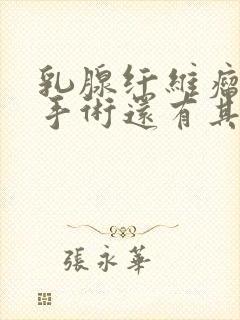 乳腺纤維瘤
手術還有其
張永華